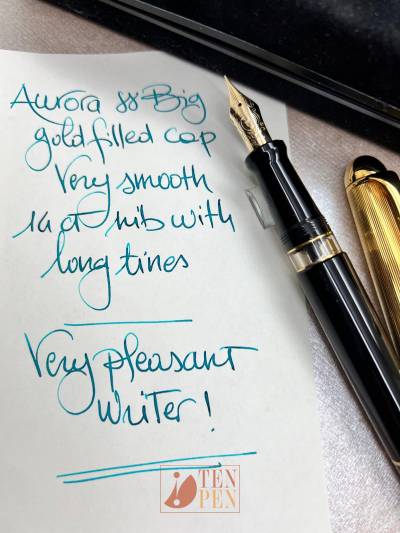 Aurora 88 Big
gold filled cap
Very smooth
14 ct nib with
long tines
Very pleasant
writer!
TEN
PEN